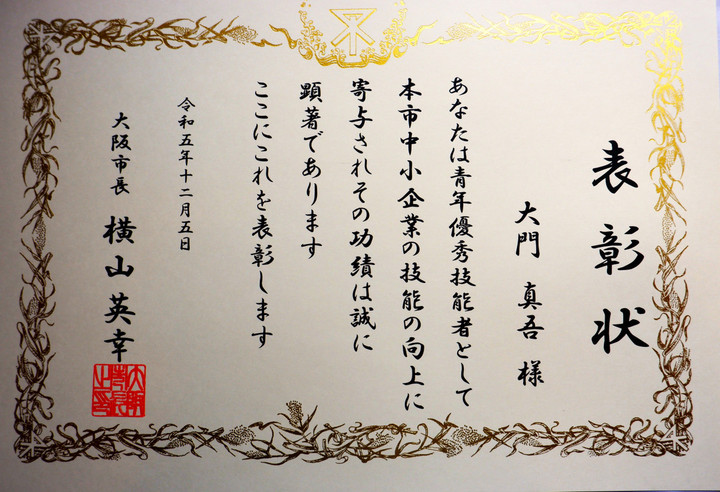 表彰状
大門 真吾 様
あなたは青年優秀技能者として
本市中小企業の技能の向上に
寄与されその功績は誠に
顕著であります
ここにこれを表彰します
令和五年十二月五日
大阪市長 横山英幸